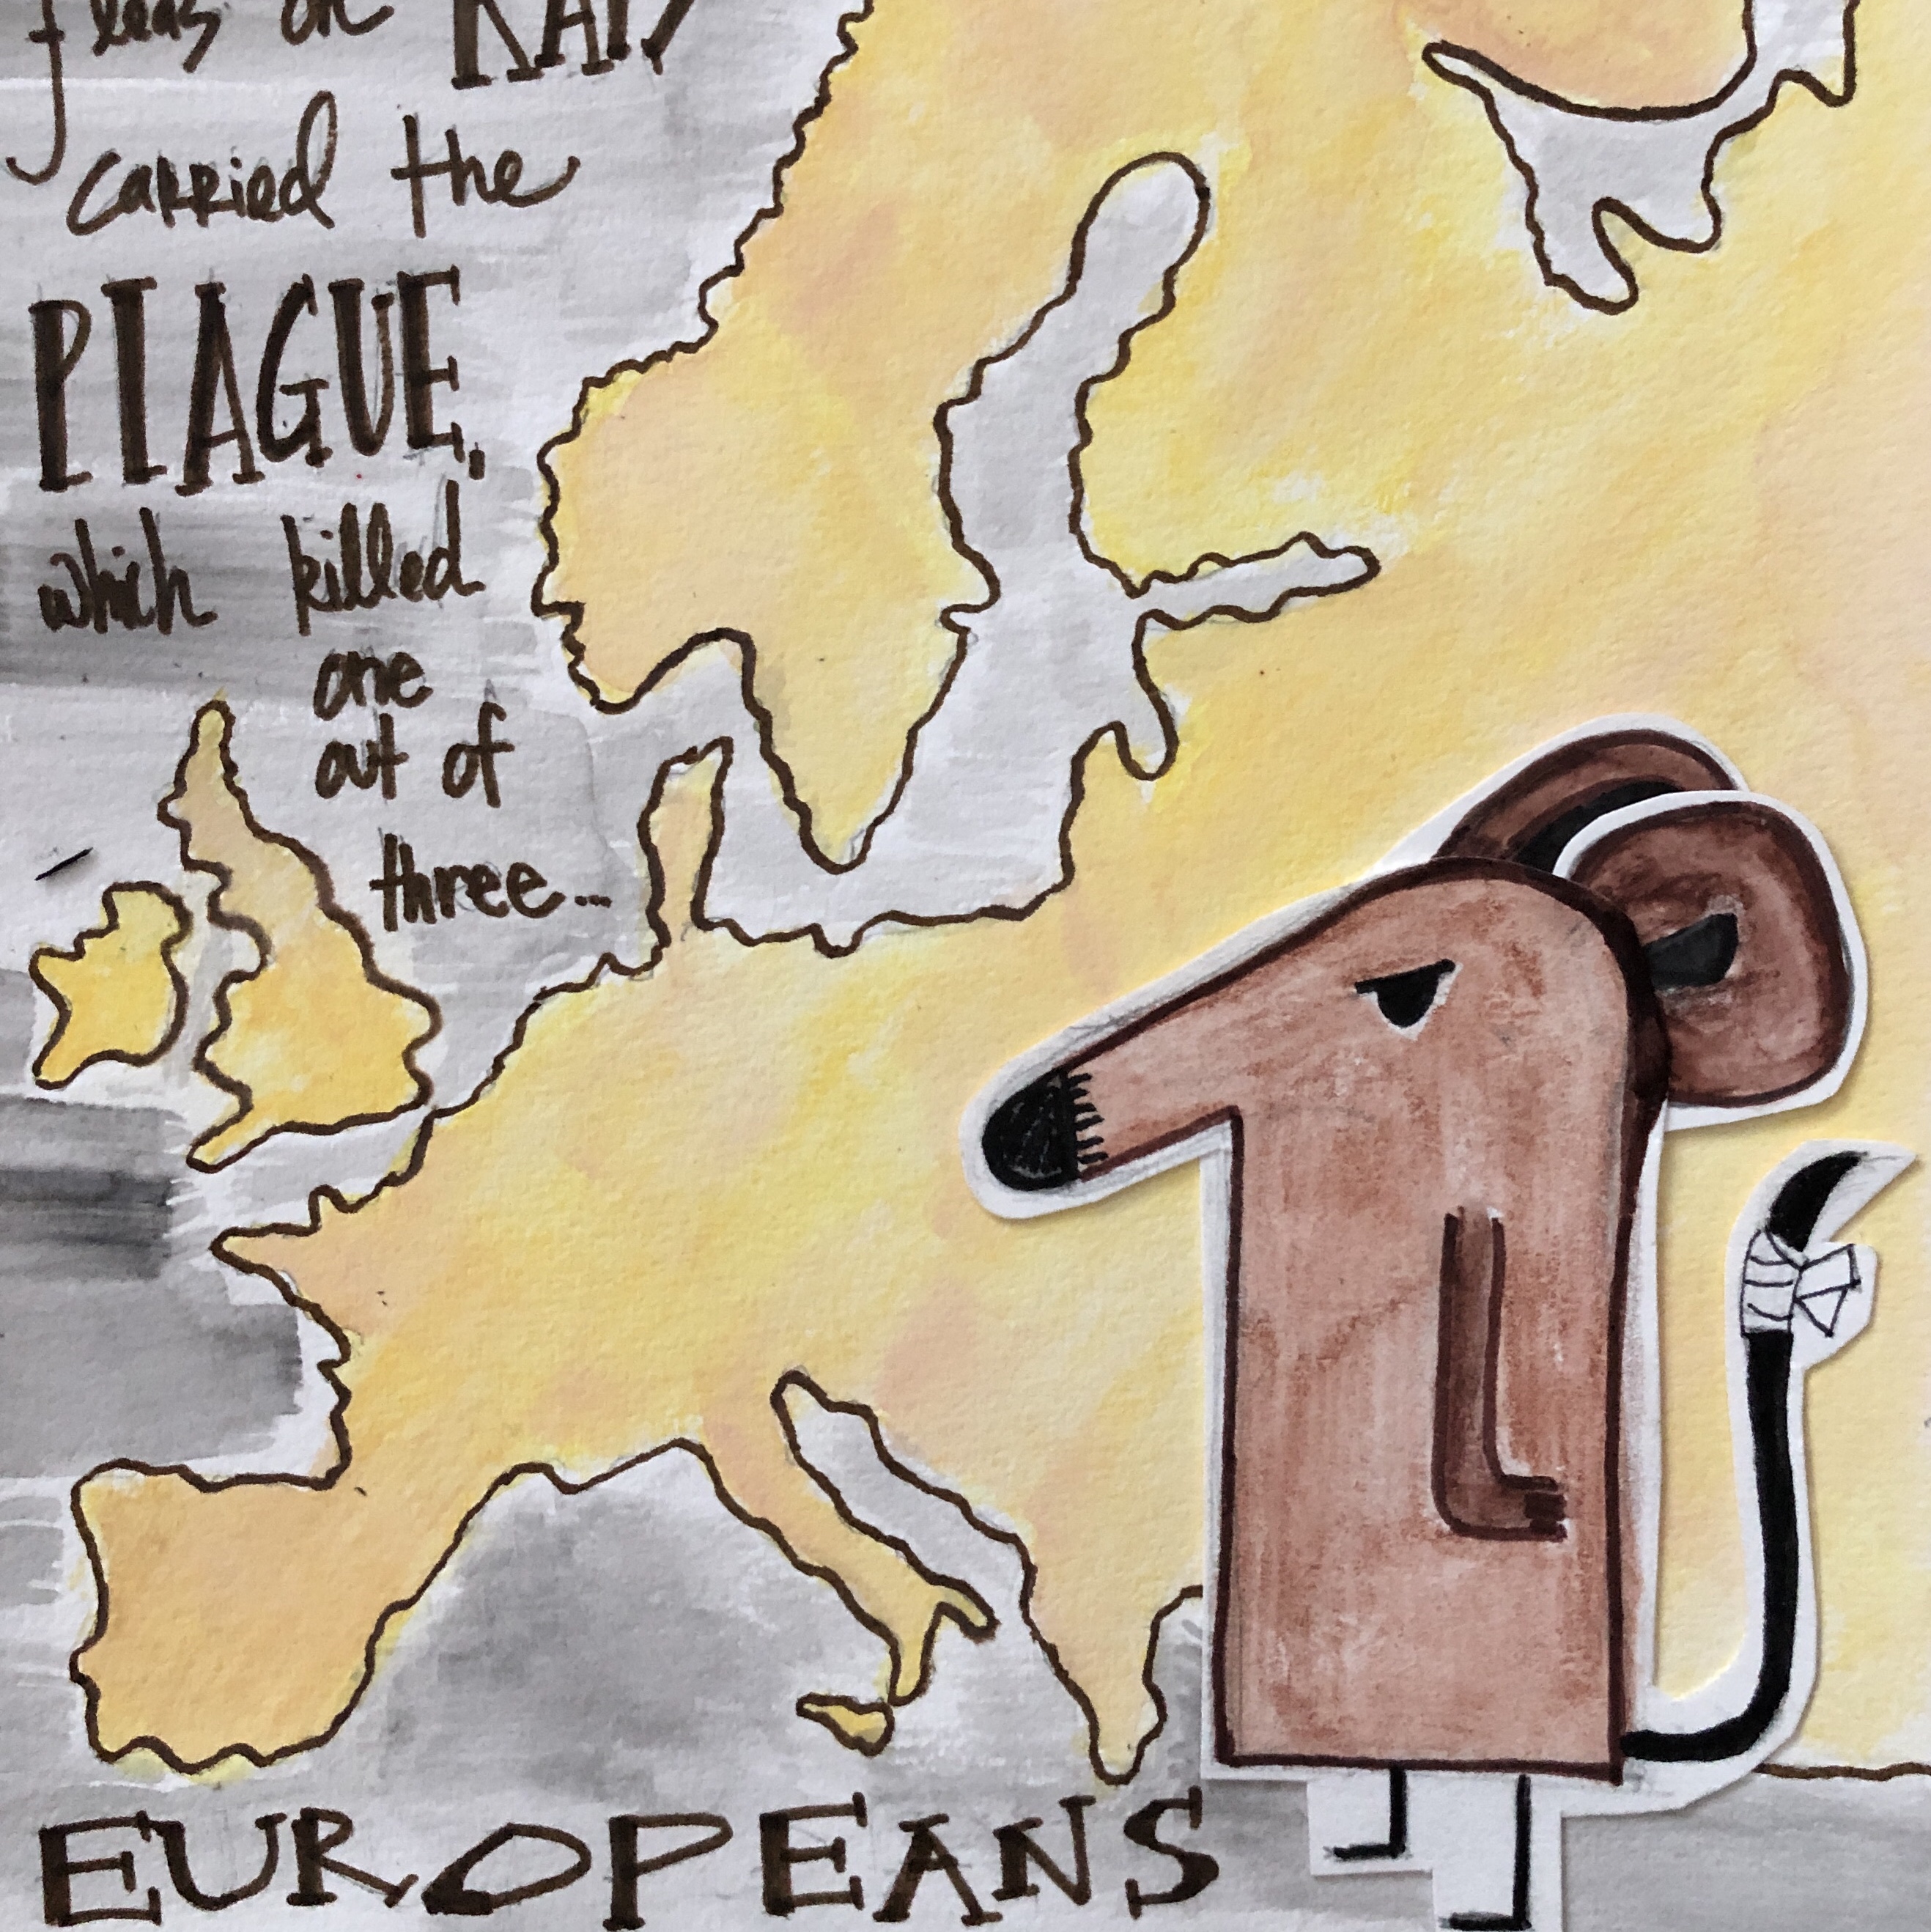 fleas on RATS
carried the
PLAGUE,
which killed
one
out of
three...
EUROPEANS